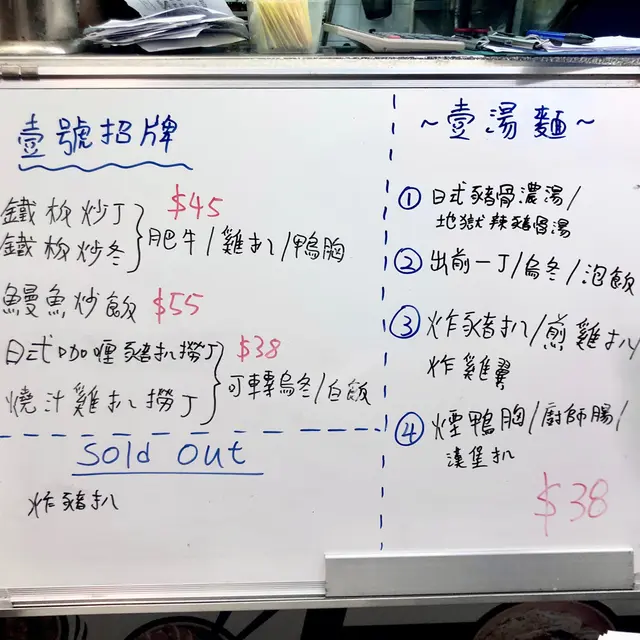 壹號招牌
鐵板炒丁 $45
鐵板炒冬
肥牛/雞扒/鴨胸
鰻魚炒飯 $55
日式咖喱豬扒撈丁 $38
燒汁雞扒撈丁
可轉烏冬/白飯
Sold Out
炸豬扒
~壹湯麵~
① 日式豬骨濃湯/
地獄辣豬骨湯
② 出前一丁/烏冬/泡飯
③ 炸豬扒/煎雞扒/
炸雞翼
④ 煙鴨胸/廚師腸/
漢堡扒
$38